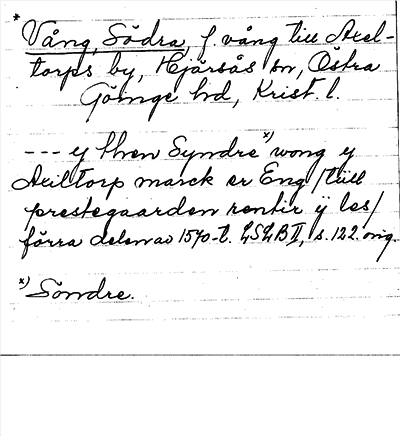 * Vång, Södra, f. vång till Axel-
torps by, Hjärsås sn, Östra
Göinge hd, Krist. l.
--- y then Syndre x) wong y
Axiltorp marck er Eng /till
prestegaarden rentir ÿ les/
förra delen av 1570-t. LSLB II, s. 122. orig.
x) Sömdre.